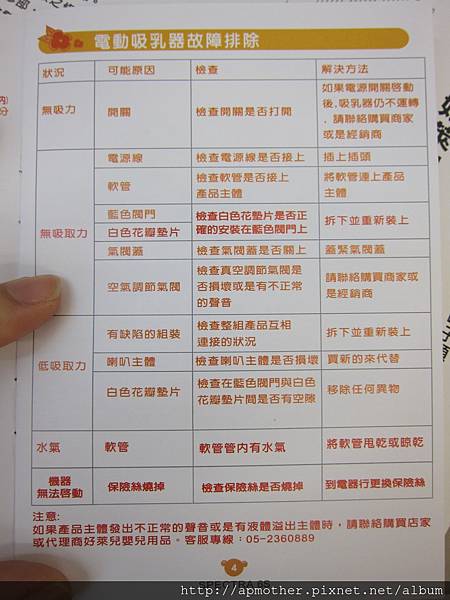 電動吸乳器故障排除
狀況 可能原因 檢查 解決方法
無吸力 開關 檢查開關是否打開 如果電源開關啓動
後,吸乳器仍不運轉
,請聯絡購買商家
或是經銷商
無吸取力
電源線 檢查電源線是否接上 插上插頭
軟管 檢查軟管是否接上
產品主體 將軟管連上產品
主體
藍色閥門
白色花瓣墊片 檢查白色花墊片是否正
確的安裝在藍色閥門上 拆下並重新裝上
氣閥蓋 檢查氣閥蓋是否關上 蓋緊氣閥蓋
空氣調節氣閥 檢查真空調節氣閥是
否損壞或是有不正常
的聲音 請聯絡購買商家或
是經銷商
低吸取力
有缺陷的組裝 檢查整組產品互相
連接的狀況 拆下並重新裝上
喇叭主體 檢查喇叭主體是否損壞 買新的來代替
白色花瓣墊片 檢查在藍色閥門與白色
花瓣墊片間是否有空隙 移除任何異物
水氣 軟管 軟管管內有水氣 將軟管甩乾或晾乾
機器
無法啓動 保險絲燒掉 檢查保險絲是否燒掉 到電器行更換保險絲
注意:
如果產品主體發出不正常的聲音或是有液體溢出主體時,請聯絡購買店家
或代理商好萊兒嬰兒用品。客服專線:05-2360889
4
SPECTRA 6S
http://apmother.pixnet.net/album